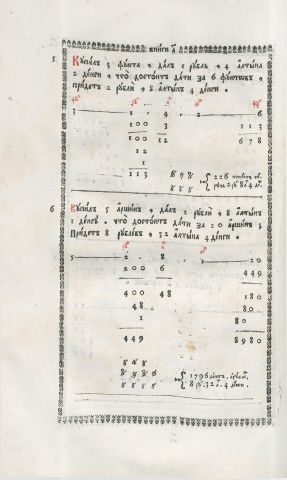 КНИГИ
5. КУПИЛЪ 3 ФУНТА , ДАЛЪ 1 РУБЛЬ , 4 АЛТЫНА
2 ДЕНГИ , ЧТО ДОСТОИТЪ ДАТИ ЗА 6 ФУНТОВЪ ,
ПРИДЕТЪ 2 РУБЛИ , 8 АЛТЫНЪ 4 ДЕНГИ .
3 1 . 4 . 2 6
100 3 113
100 12 678
12
1
113
226
6 КУПИЛЪ 5 АРШИНЪ , ДАЛЪ 2 РУБЛИ , 8 АЛТЫНЪ
1 ДЕНГУ , ЧТО ДОСТОИТЪ ДАТИ ЗА 20 АРШИНЪ ;
ПРИДЕТЪ 8 РУБЛЕВЪ , 32 АЛТЫНА 4 ДЕНГИ .
5 2 . 8 . 1 20
200 6 449
400 48 180
48 80
1 80
449 8980
1796
8 32 4